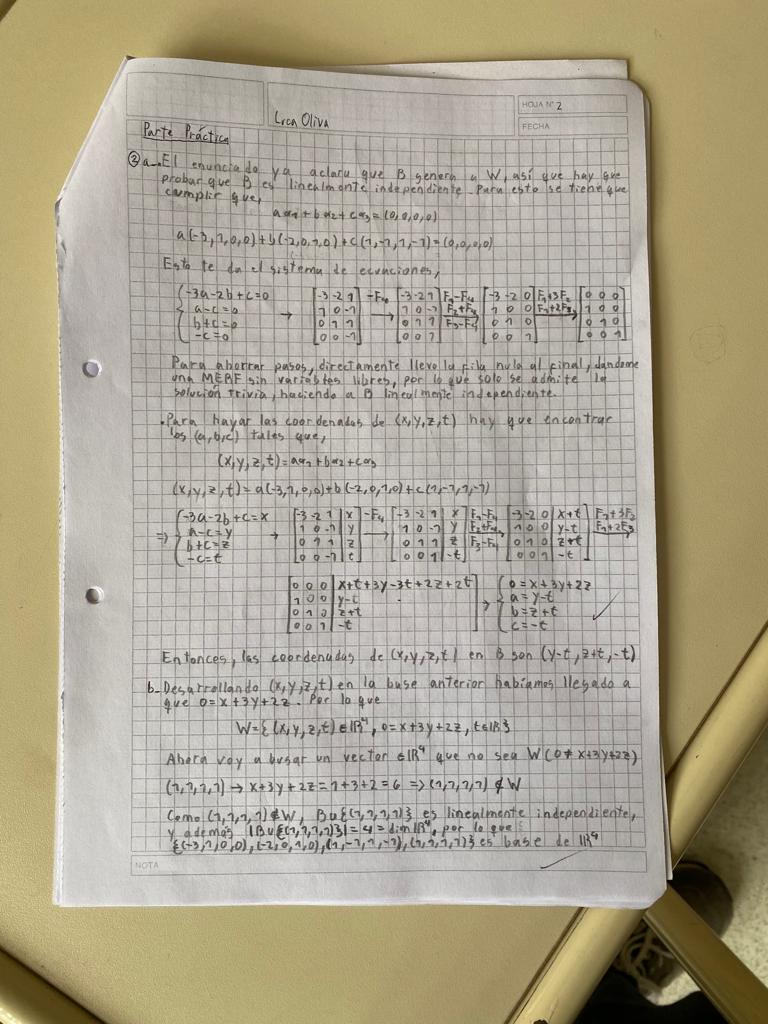 HOJA N° 2
Lrca Oliva
FECHA
Parte Práctica
② a-. El enunciado ya aclara que B genera a W, así que hay que
probar que B es linealmente independiente. Para esto se tiene que
cumplir que,
aα₁+bα₂+cα₃=(0,0,0,0)
a(-3,1,0,0)+b(-2,0,1,0)+c(1,-1,1,-1)=(0,0,0,0)
Esto te da el sistema de ecuaciones,
{-3a-2b+c=0 → [-3 -2 1] -F₄ → [-3 -2 1] F₁-F₄ [-3 -2 0] F₁+3F₂ [0 0 0]
a-c=0 [1 0 -1] [1 0 -1] F₂+F₄ → [1 0 0] F₁+2F₃ → [1 0 0]
b+c=0 [0 1 1] [0 1 1] F₃-F₄ [0 1 0] [0 1 0]
-c=0 [0 0 -1] [0 0 1] [0 0 1] [0 0 1]
Para ahorrar pasos, directamente llevo la fila nula al final, dandome
una MERF sin variables libres, por lo que solo se admite la
solución trivia, haciendo a B linealmente independiente.
• Para hayar las coordenadas de (x,y,z,t) hay que encontrar
los (a,b,c) tales que,
(x,y,z,t)=aα₁+bα₂+cα₃
(x,y,z,t)=a(-3,1,0,0)+b(-2,0,1,0)+c(1,-1,1,-1)
⇒ {-3a-2b+c=x → [-3 -2 1 | x] -F₄ → [-3 -2 1 | x] F₁-F₄ [-3 -2 0 | x+t] F₁+3F₂
a-c=y [1 0 -1 | y] [1 0 -1 | y] F₂+F₄ → [1 0 0 | y-t] F₁+2F₃ →
b+c=z [0 1 1 | z] [0 1 1 | z] F₃-F₄ [0 1 0 | z+t]
-c=t [0 0 -1 | t] [0 0 1 | -t] [0 0 1 | -t]
[0 0 0 | x+t+3y-3t+2z+2t] → {0=x+3y+2z
[1 0 0 | y-t] a=y-t
[0 1 0 | z+t] b=z+t
[0 0 1 | -t] c=-t
Entonces, las coordenadas de (x,y,z,t) en B son (y-t,z+t,-t)
b- Desarrollando (x,y,z,t) en la base anterior habíamos llegado a
que 0=x+3y+2z. Por lo que
W={(x,y,z,t)∈ℝ⁴, 0=x+3y+2z, t∈ℝ}
Ahora voy a busar un vector ∈ℝ⁴ que no sea W (0≠x+3y+2z)
(1,1,1,1) → x+3y+2z=1+3+2=6 ⇒ (1,1,1,1)∉W
Como (1,1,1,1)∉W, B∪{(1,1,1,1)} es linealmente independiente,
y además |B∪{(1,1,1,1)}|=4=dim ℝ⁴, por lo que
{(-3,1,0,0),(-2,0,1,0),(1,-1,1,-1),(1,1,1,1)} es base de ℝ⁴
NOTA